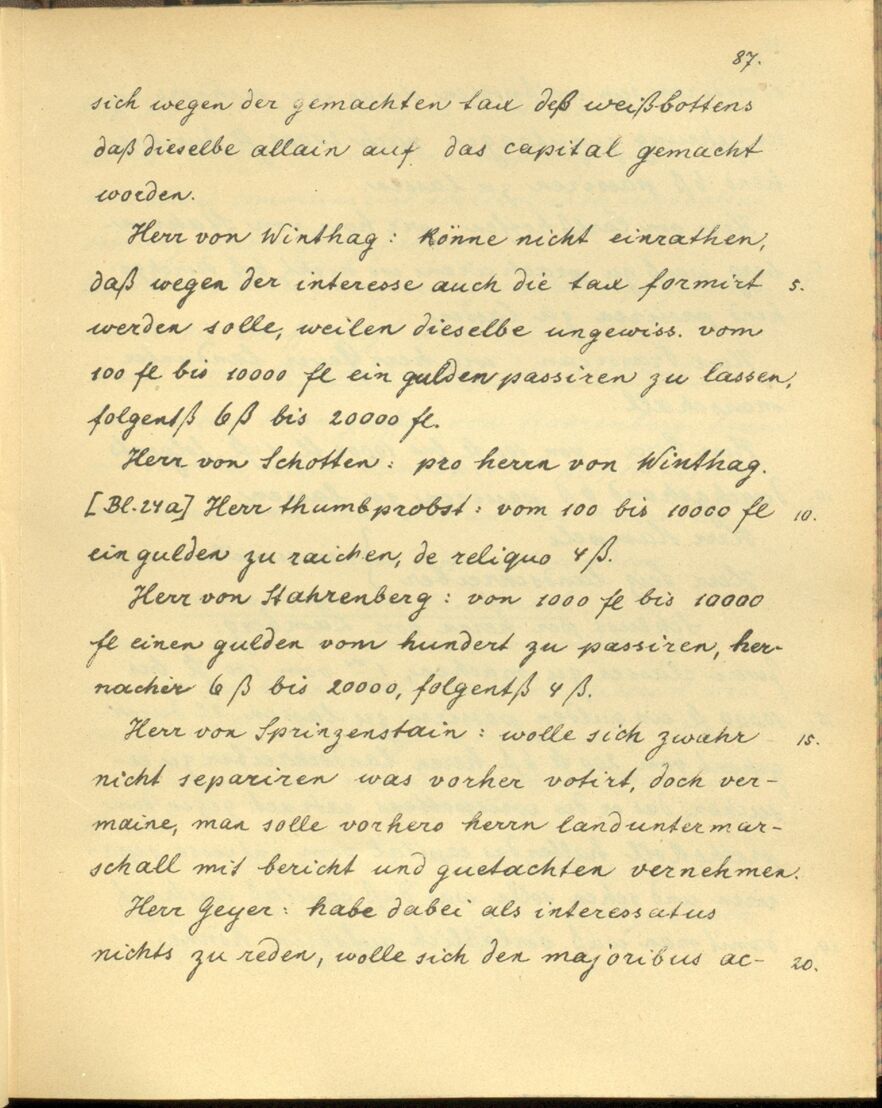 87.
sich wegen der gemachten tax deß weißbottens
daß dieselbe allain auf das capital gemacht
worden.
Herr von Winthag: könne nicht einrathen,
daß wegen der interesse auch die tax formirt 5.
werden solle, weilen dieselbe ungewiss. vom
100 fl bis 10000 fl ein gulden passiren zu lassen,
folgentß 6 ß bis 20000 fl.
Herr von Schotten: pro herrn von Winthag.
[Bl. 24a] Herr thumbprobst: vom 100 bis 10000 fl 10.
ein gulden zu raichen, de reliquo 4 ß.
Herr von Stahrenberg: von 1000 fl bis 10000
fl einen gulden vom hundert zu passiren, her-
nacher 6 ß bis 20000, folgentß 4 ß.
Herr von Sprinzenstain: wolle sich zwahr 15.
nicht separiren was vorher votirt, doch ver-
maine, man solle vorhero herrn landuntermar-
schall mit bericht und guetachten vernehmen.
Herr Geyer: habe dabei als interessatus
nichts zu reden, wolle sich den majoribus ac- 20.